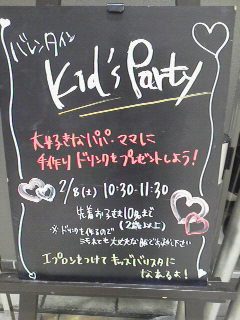 バレンタイン
Kid's Party
大好きなパパ・ママに
手作りドリンクをプレゼントしよう!
2/8(土) 10:30-11:30
先着お子さま10名まで
(2歳以上)
※ドリンクを作るので
汚れても大丈夫な服でお越し下さい
エプロンをつけてキッズバリスタに
なれるよ!